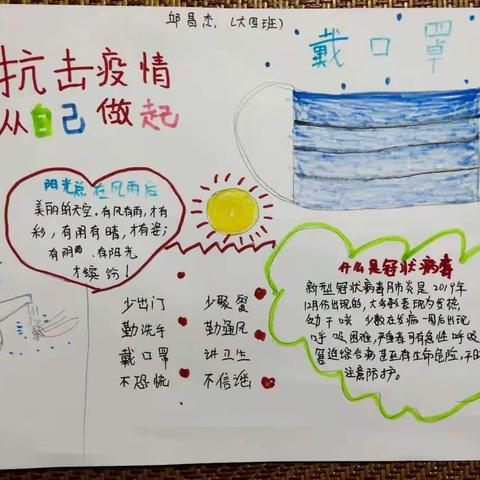 邱昌杰,(大四班)
戴口罩
抗击疫情
从自己做起
阳光总在风雨后
美丽的天空,有风有雨,才有
彩,有阴有晴,才有姿;
有阴 有阳光
才缤纷!
少出门 少聚餐
勤洗手 勤通风
戴口罩 讲卫生
不恐慌 不信谣
什么是冠状病毒
新型冠状病毒肺炎是2019年
12月份出现的,大多数表现为发热,
干咳 少数在发病一周后出现
呼吸困难,严重者可有急性呼吸
窘迫综合病甚至有生命危险,
注意防护。